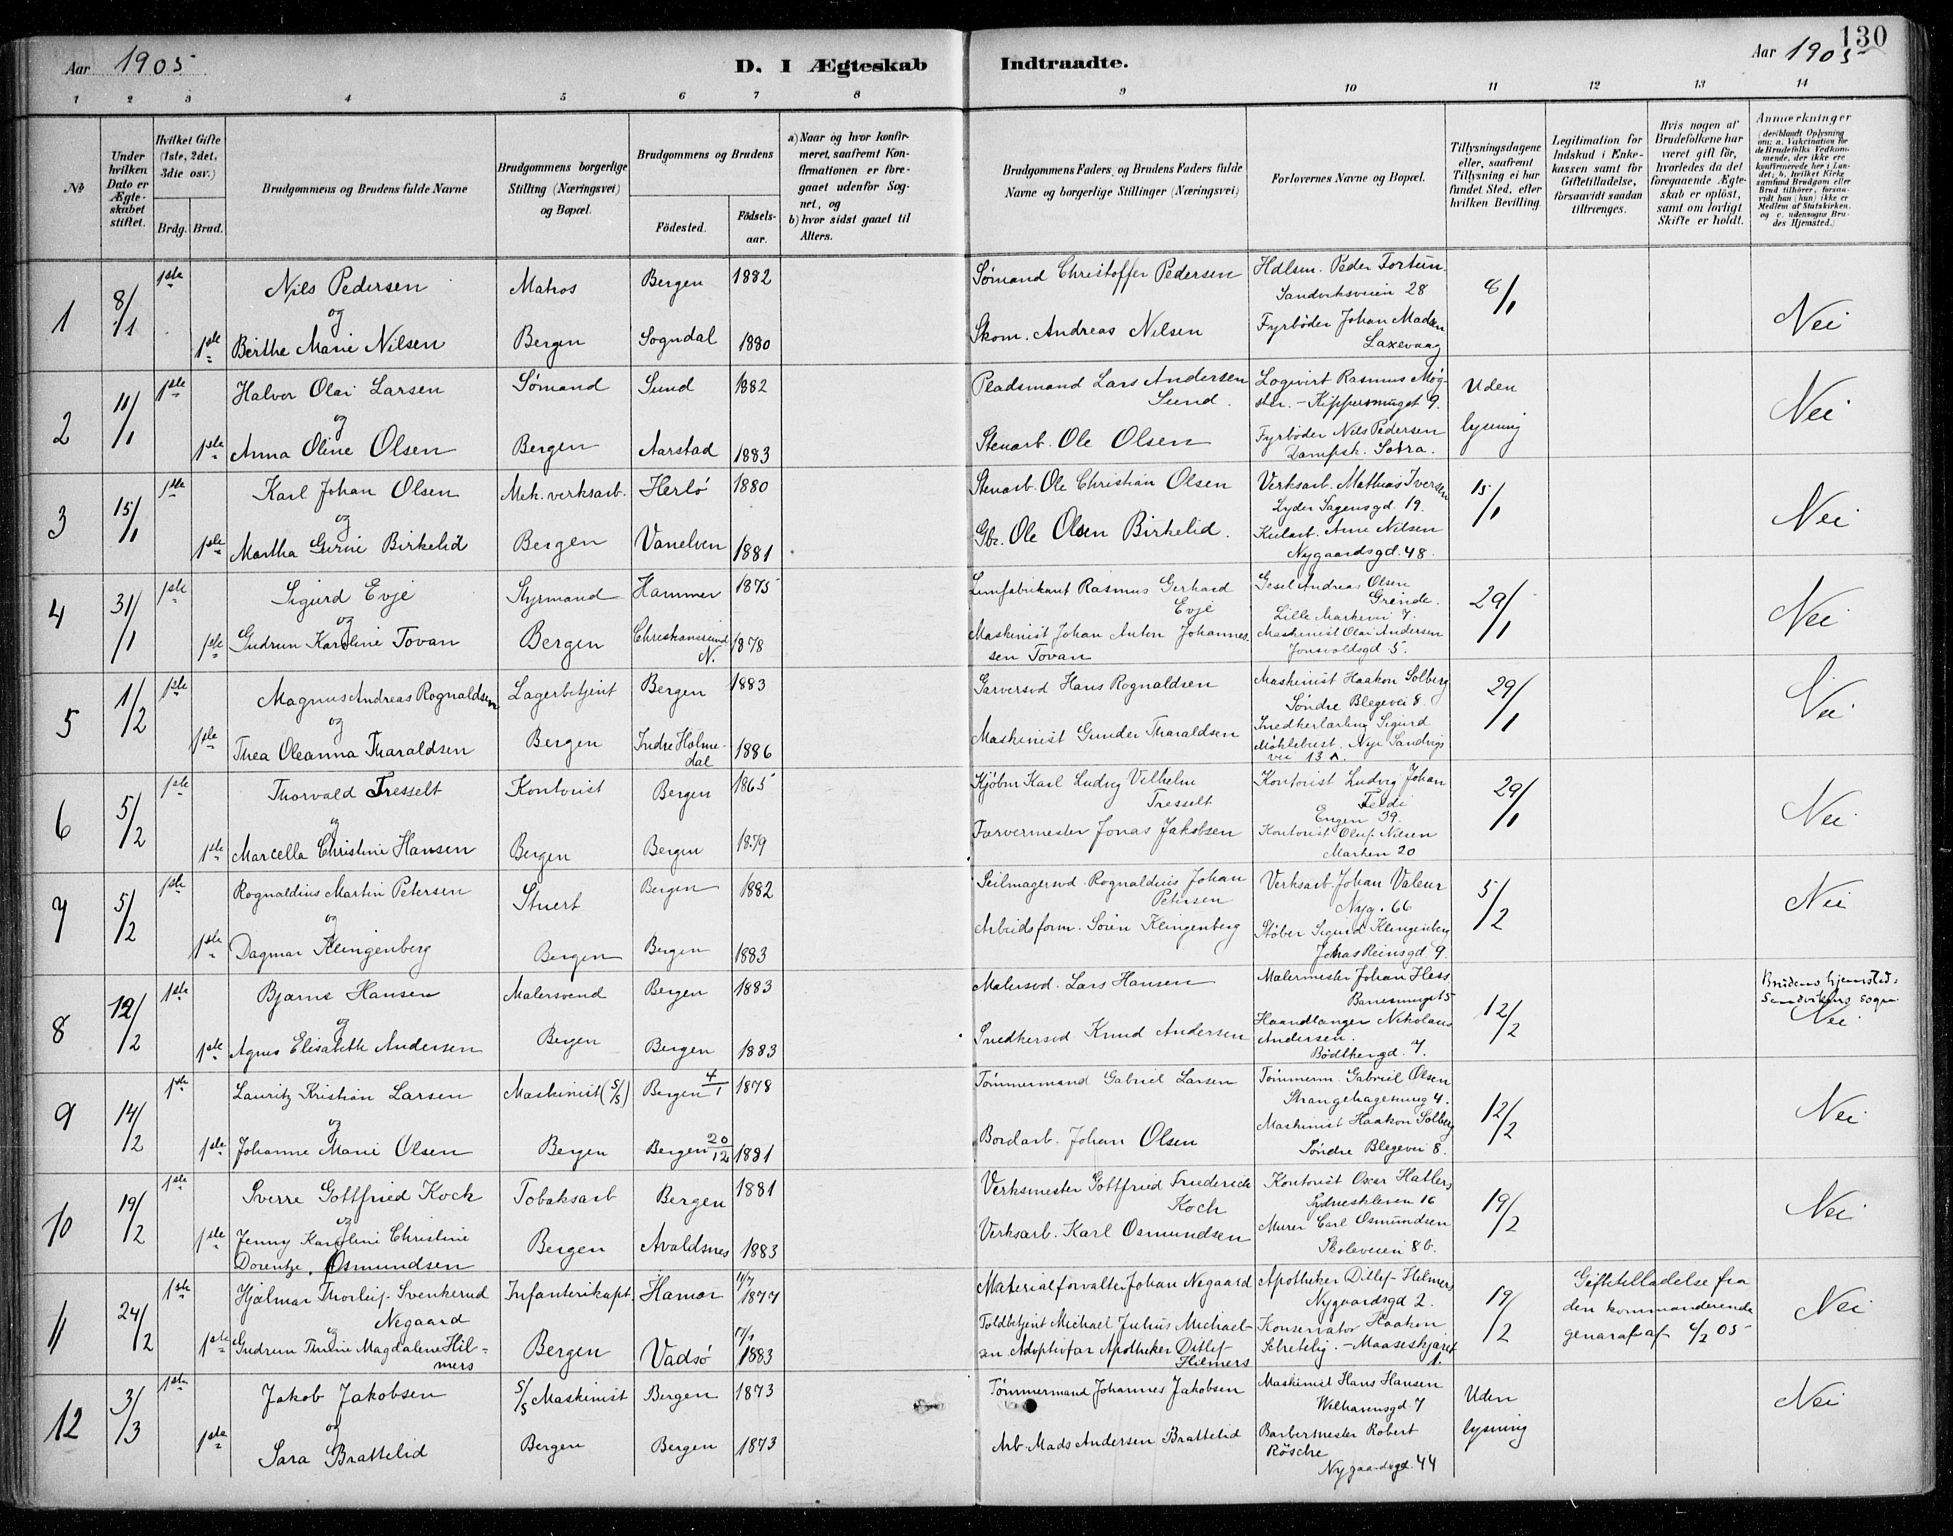 130
Aar 1905
D. I Ægteskab Indtraadte.
Aar 1905
1 2 3 4 5 6 7 8 9 10 11 12 13 14
№
Under hvilken Dato er Ægteskabet stiftet.
Hvilket Gifte (1ste, 2det, 3die osv.)
Brdg. Brud.
Brudgommens og Brudens fulde Navne
Brudgommens borgerlige Stilling (Næringsvei) og Bopæl.
Brudgommens og Brudens
Fødested.
Fødsels-aar.
a) Naar og hvor konfirmeret, saafremt Konfirmationen er foregaaet udenfor Sognet, og
b) hvor sidst gaaet til Alters.
Brudgommens Faders og Brudens Faders fulde Navne og borgerlige Stillinger (Næringsvei)
Forlovernes Navne og Bopæl.
Tillysningsdagene eller, saafremt Tillysning ei har fundet Sted, efter hvilken Bevilling.
Legitimation for Indskud i Enkekassen samt for Giftetilladelse, forsaavidt saadan tiltrænges.
Hvis nogen af Brudefolkene har været gift før, hvorledes da det foregaaende Ægteskab er opløst, samt om lovligt Skifte er holdt.
Anmerkninger
(deriblandt Oplysning om: a. Vakcination for de Brudefolks Vedkommende, der ikke ere konfirmerede her i Landet; b. hvilket Kirkesamfund Brudgom eller Brud tilhører, forsaavidt han (hun) ikke er Medlem af Statskirken, og c. udensogns Brudes Hjemsted.)
1 8/1 1ste Nils Pedersen Matros Bergen 1882 Sømand Christoffer Pedersen Hdlsm. Peder Fortun. Sandviksveien 28 8/1 Nei
og
1ste Birthe Marie Nilsen Bergen Sogndal 1880 Skom. Andreas Nilsen Fyrbøder Johan Madsen Laxevaag
2 11/1 1ste Halvor Olai Larsen Sømand Sund 1882 Pladsmand Lars Andersen Sund. Logivirt Rasmus Møgster. - Kippersmuget 9. Uden lysning Nei
og
1ste Anna Oline Olsen Bergen Aarstad 1883 Stenarb. Ole Olsen Fyrbøder Nils Pedersen Dampsk. Sotra.
3 15/1 1ste Karl Johan Olsen Mek. verksarb. Herlø 1880 Stenarb. Ole Christian Olsen Verksarb. Mathias Iversen Lyder Sagensgd 19. 15/1 Nei
og
1ste Martha Gurine Birkelid Bergen Vanelven 1881 Gbr. Ole Olsen Birkelid. Kularb. Arne Nilsen Nygaardsgd. 48.
4 31/1 1ste Sigurd Evje Styrmand Hammer 1875 Rasmus Gerhard Evje Andreas Olsen Grinde. Lille Markevei 7. 29/1 Nei
og
1ste Gudrun Karoline Tovan Bergen Christianssund N. 1878 Maskinist Johan Anton Johannessen Tovan Maskinist Olai Andersen Jonsvoldsgd 5.
5 1/2 1ste Magnus Andreas Rognaldsen Lagerbetjent Bergen 1883 Garversvd Hans Rognaldsen Maskinist Haakon Solberg Søndre Blegevei 8. 29/1 Nei
og
1ste Thea Oleanna Tharaldsen Bergen Indre Holmedal 1886 Maskinist Gunder Tharaldsen Snedkerlærling Sigurd Møhlebust. Nye Sandvigsvei 13 A
6 5/2 1ste Thorvald Tresselt Kontorist Bergen 1865 Kjøbm Karl Ludvig Vilhelm Tresselt Kontorist Ludvig Johan Engen 39. 29/1 Nei
og
1ste Marcella Christine Hansen Bergen Bergen 1879 Farvermester Jonas Jakobsen Kontorist Oluf Nilsen Marken 20
7 5/2 1ste Rognaldius Martin Petersen Stuert Bergen 1882 Seilmagersvd. Rognaldius Johan Petersen Verksarb. Johan Valeur Nyg. 66 5/2 Nei
og
1ste Dagmar Klingenberg Bergen Bergen 1883 Arbeidsform. Søren Klingenberg Støber Sigurd Klingenberg Jonas Reinsgd. 9.
8 12/2 1ste Bjarne Hansen Malersvend Bergen 1883 Malersvd. Lars Hansen Malermester Johan Hess Banesmuget 5 12/2 Brudens hjemsted: Sandvikens sogn. Nei
og
1ste Agnes Elisabeth Andersen Bergen Bergen 1883 Snedkersvd Knud Andersen Haandlanger Nikolaus Andersen. Bødkergd. 7.
9 14/2 1ste Lauritz Kristian Larsen Maskinist (S/S) Bergen 4/1 1878 Tømmermand Gabriel Larsen Tømmerm. Gabriel Olsen Strangehagesmug 4. 12/2 Nei
og
1ste Johanne Marie Olsen Bergen Bergen 20/12 1881 Bordarb. Johan Olsen Maskinist Haakon Solberg Søndre Blegevei 8.
10 19/2 1ste Sverre Gottfried Koch Tobaksarb Bergen 1881 Verksmester Gottfried Friederich Koch Kontorist Oscar Hatlers Sydneskleven 16 19/2 Nei
og
1ste Jenny Karoline Christine Dorentze. Osmundsen Bergen Avaldsnes 1883 Verksarb. Karl Osmundsen Murer Carl Osmundsen Skoleveien 8b.
11 24/2 1ste Hjalmar Thorleif Svenkerud Negaard Infanterikapt. Hamar 11/7 1877 Materialforvalter Johan Negaard Apotheker Ditlef Hilmers Nygaardsgd 2. 19/2 Giftetilladelse fra den kommanderende genaral af 6/2 05 Nei
og
1ste Gudrun Thrine Magdalene Hilmers Bergen Vadsø 17/1 1883 Toldbetjent Michael Julius Michaelsen Adoptivfar Apotheker Ditlef Hilmers Konservator Haakon Schetelig. - Maaseskjæret 1.
12 3/3 1ste Jakob Jakobsen S/S Maskinist Bergen 1873 Tømmermand Johannes Jakobsen Maskinist Hans Hansen Welhavensgd 7 Uden lysning Nei
og
1ste Sara Brattelid Bergen Bergen 1873 Arb. Mads Andersen Brattelid Barbermester Robert Röschre Nygaardsgd. 44